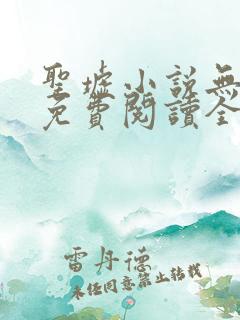 聖墟小説無
免費閱讀全
雷丹德
未经同意禁止转载